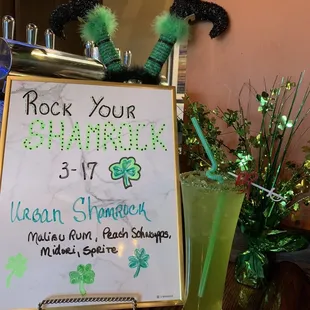 Rock Your
SHAMROCK
3-17
Urban Shamrock
Malibu Rum, Peach Schnapps,
Midori, Sprite